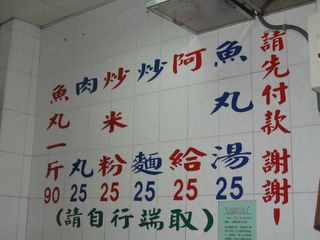 請先付款 謝謝!
魚丸湯 25
阿給 25
炒麵 25
炒米粉 25
肉丸 25
魚丸一斤 90
(請自行端取)